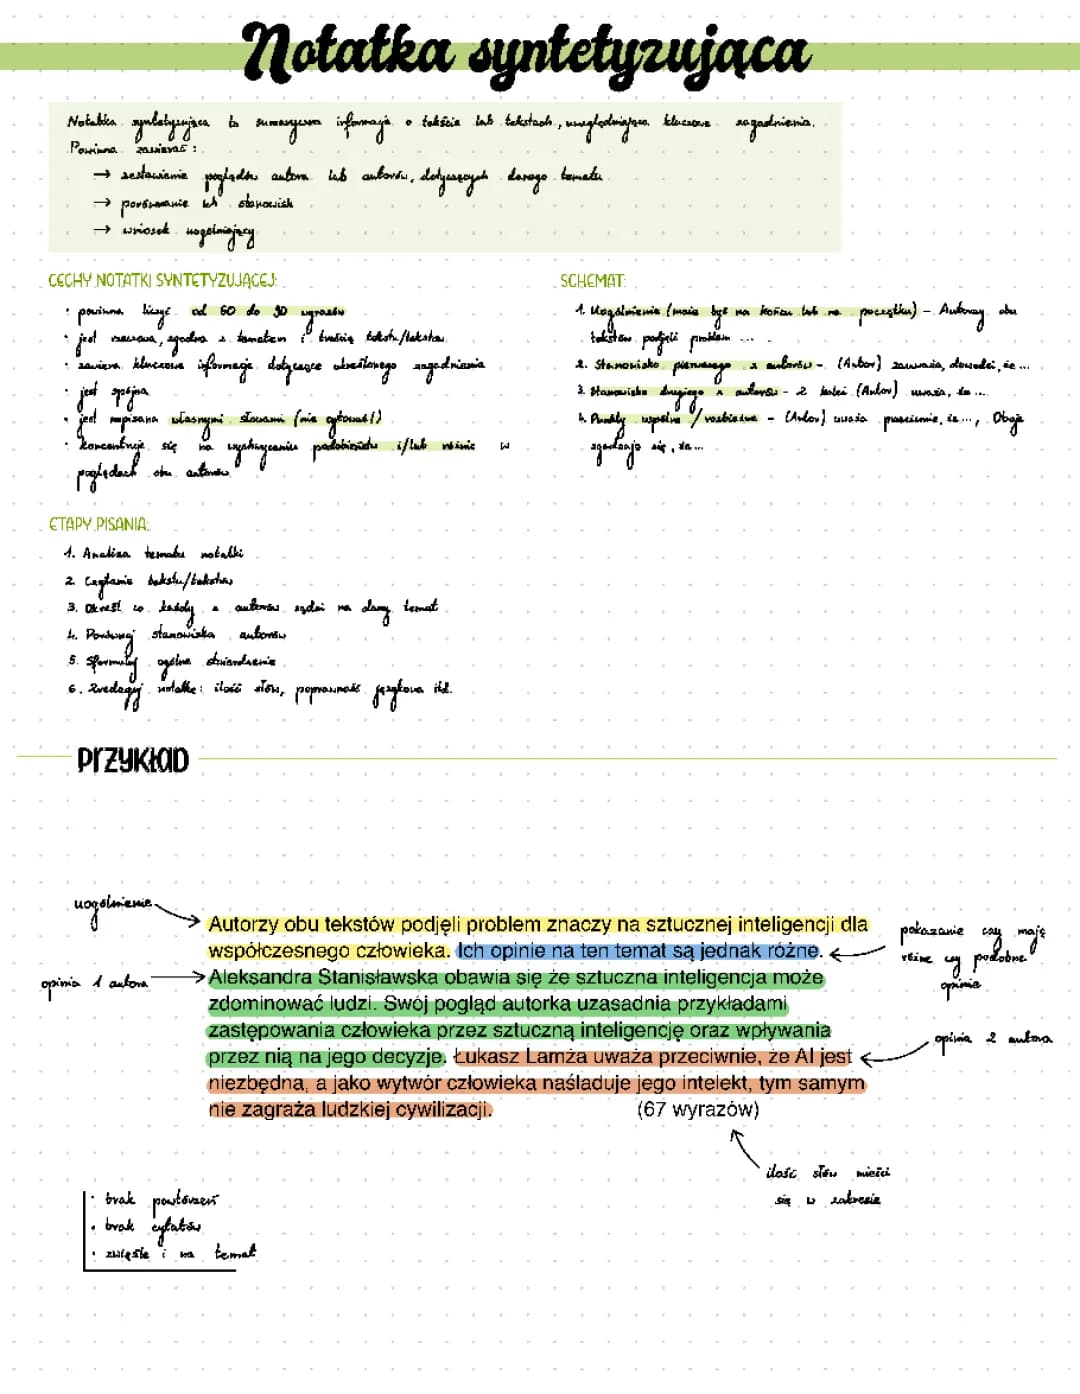 Notatka syntetyzująca
Notatka syntetyzująca to sumaryczna informacja o tekście lub tekstach, uwzględniająca kluczowe zagadnienia.
Powinna zawierać:
→ zestawienie poglądów autora lub autorów, dotyczących danego tematu
→ porównanie ich stanowisk
→ wniosek uogólniający
CECHY NOTATKI SYNTETYZUJĄCEJ:
• powinna liczyć od 60 do 90 wyrazów
• jest rzeczowa, zgodna z tematem i treścią tekstu/tekstów
• zawiera kluczowe informacje dotyczące określonego zagadnienia
• jest spójna
• jest napisana własnymi słowami (nie cytować!)
• koncentruje się na wychwyceniu podobieństw i/lub różnic w
poglądach obu autorów
SCHEMAT:
1. Uogólnienie (może być na końcu lub na początku) - Autorzy obu
tekstów podjęli problem ...
2. Stanowisko pierwszego z autorów - (Autor) zauważa, dowodzi, że ...
3. Stanowisko drugiego z autorów - z kolei (Autor) uważa, że ...
4. Punkty wspólne / rozbieżne - (Autor) uważa przeciwnie, że ..., Oboje
zgadzają się, że ...
ETAPY PISANIA:
1. Analiza tematu notatki
2. Czytanie tekstu/tekstów
3. Określ co każdy z autorów sądzi na dany temat
4. Porównaj stanowiska autorów
5. Sformułuj ogólne stwierdzenie
6. Zredaguj notatkę: ilość słów, poprawność językowa itd.
PRZYKŁAD
uogólnienie
Autorzy obu tekstów podjęli problem znaczy na sztucznej inteligencji dla
współczesnego człowieka. Ich opinie na ten temat są jednak różne.
pokazanie czy mają
różne czy podobne
opinie
opinia 1 autora
Aleksandra Stanisławska obawia się że sztuczna inteligencja może
zdominować ludzi. Swój pogląd autorka uzasadnia przykładami
zastępowania człowieka przez sztuczną inteligencję oraz wpływania
przez nią na jego decyzje. Łukasz Lamża uważa przeciwnie, że AI jest
opinia 2 autora
niezbędna, a jako wytwór człowieka naśladuje jego intelekt, tym samym
nie zagraża ludzkiej cywilizacji. (67 wyrazów)
ilość słów mieści
się w zakresie
• brak powtórzeń
• brak cytatów
• zwięźle i na temat